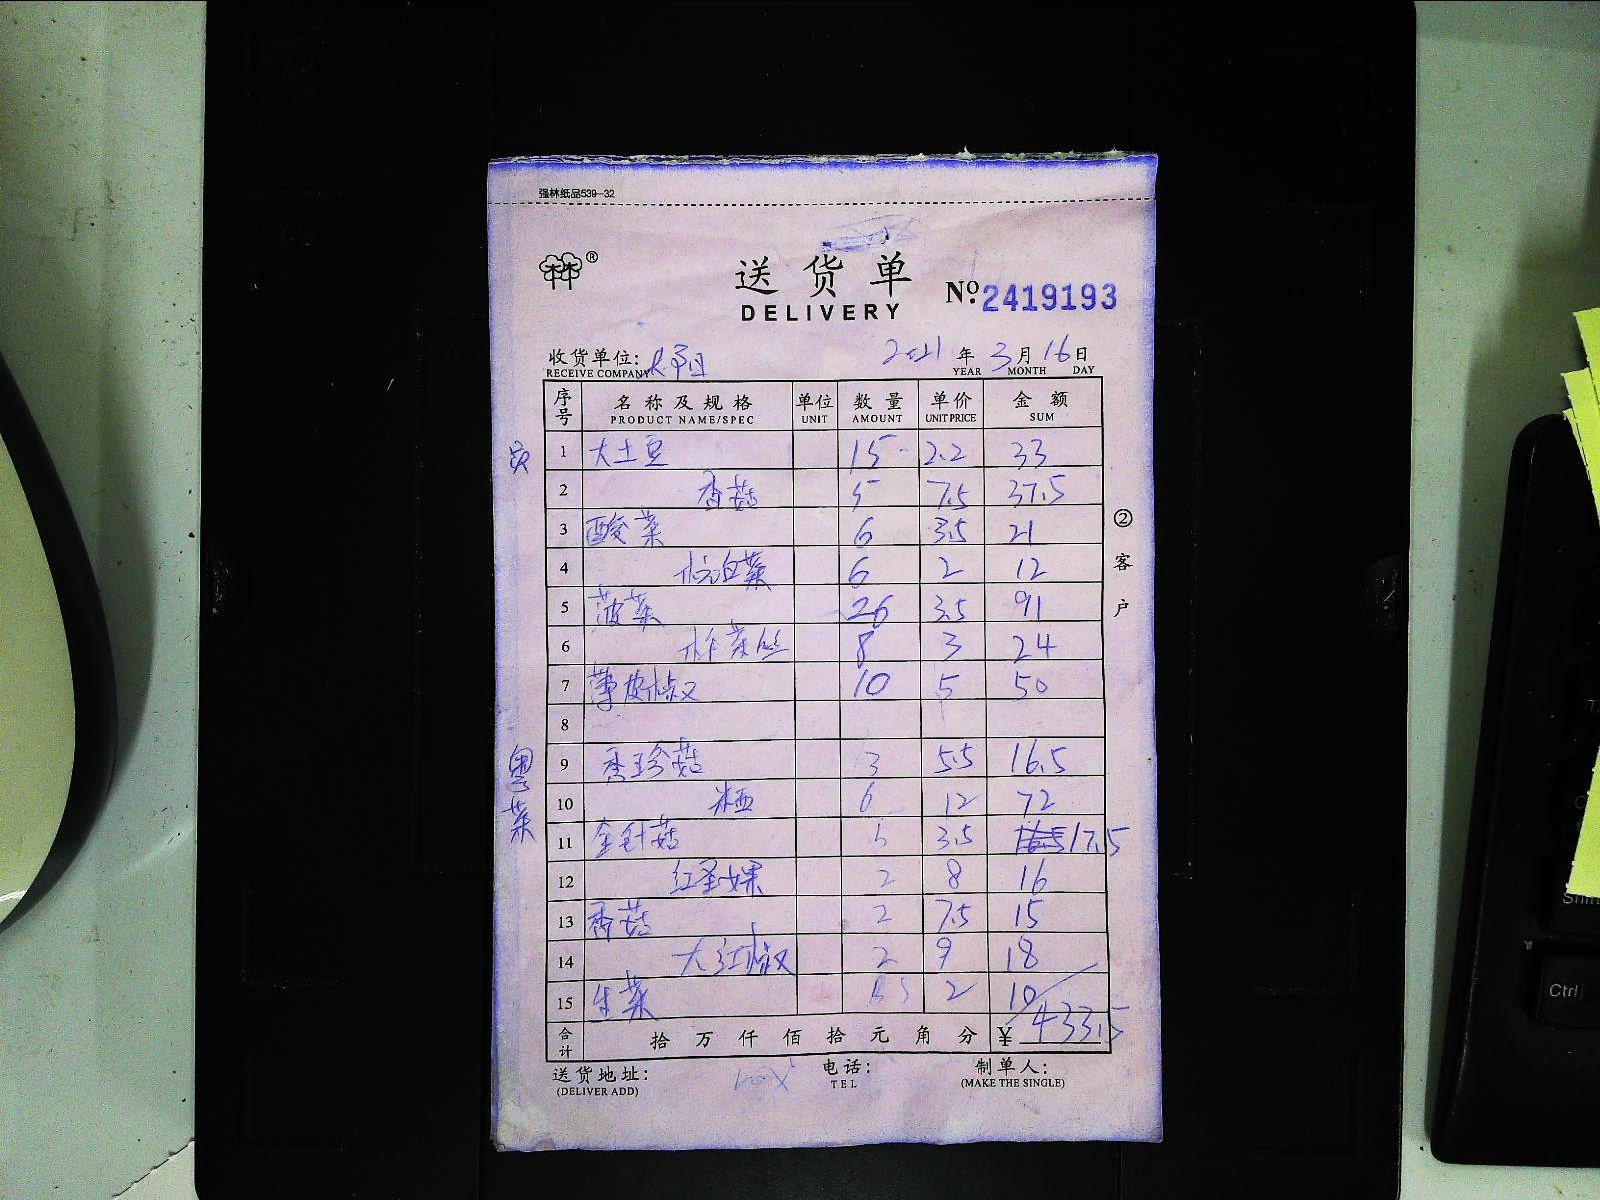 强林纸品539-32
林林®
送货单 №.2419193
DELIVERY
收货单位: 2021年3月16日
RECEIVE COMPANY YEAR MONTH DAY
序号 名称及规格 单位 数量 单价 金额
PRODUCT NAME/SPEC UNIT AMOUNT UNIT PRICE SUM
1 大土豆 15 2.2 33
2 香菇 5 7.5 37.5
3 酸菜 6 3.5 21
4 白菜 6 2 12
5 菠菜 26 3.5 91
6 榨菜丝 8 3 24
7 薄皮椒 10 5 50
8
9 秀珍菇 3 5.5 16.5
10 6 12 72
11 金针菇 5 3.5 17.5
12 红圣女果 2 8 16
13 香菇 2 7.5 15
14 大红椒 2 9 18
15 生菜 5 2 10
合计 拾万仟佰拾元角分 ¥433.5
送货地址: 电话: 制单人:
(DELIVER ADD) TEL (MAKE THE SINGLE)
②客户
粤菜
Ctrl